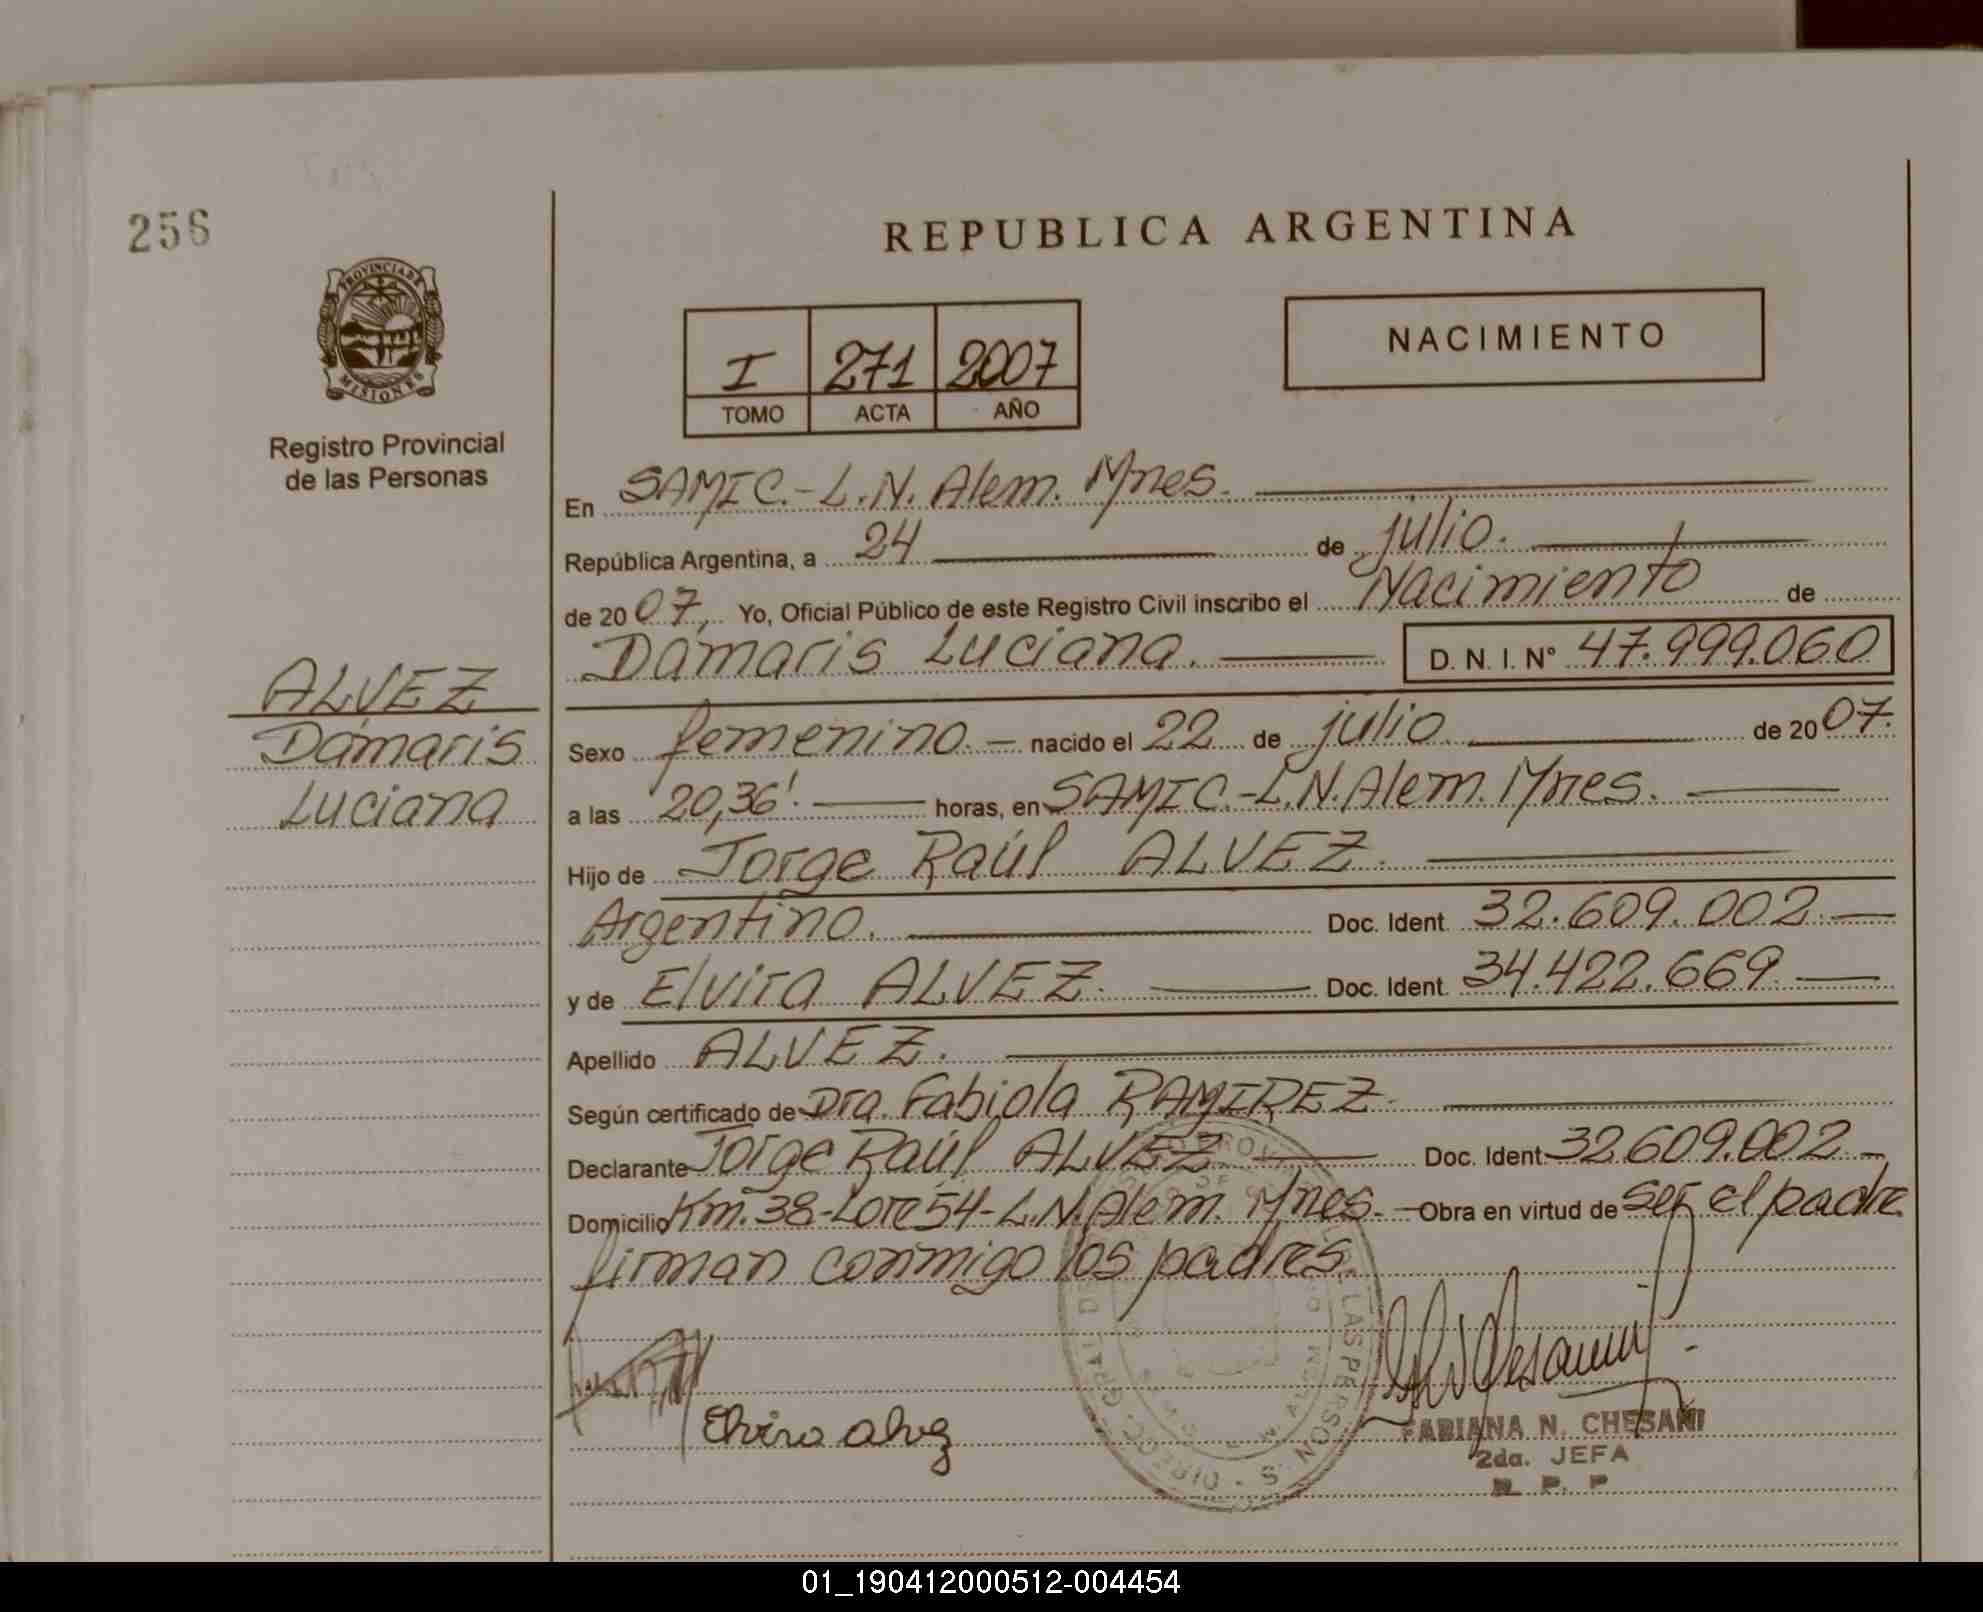 256
REPUBLICA ARGENTINA
PROVINCIA DE
MISIONES
Registro Provincial
de las Personas
I 271 2007
TOMO ACTA AÑO
NACIMIENTO
En SAMIC.-L.N. Alem. Mnes.
República Argentina, a 24 de julio.
de 2007, Yo, Oficial Público de este Registro Civil inscribo el Nacimiento de
Dámaris Luciana. D. N. I. Nº 47.999.060
ALVEZ
Dámaris
Luciana
Sexo femenino. nacido el 22 de julio de 2007.
a las 20,36'. horas, en SAMIC.-L.N. Alem. Mnes.
Hijo de Jorge Raúl ALVEZ.
Argentino. Doc. Ident. 32.609.002
y de Elvira ALVEZ. Doc. Ident. 34.422.669
Apellido ALVEZ.
Según certificado de Dra. Fabiola RAMIREZ
Declarante Jorge Raúl ALVEZ Doc. Ident. 32.609.002
Domicilio Km. 38-Lote 54-L.N. Alem. Mnes. Obra en virtud de ser el padre
firman conmigo los padres
Elvira alvez
FABIANA N. CHESANI
2da. JEFA
R. P. P
01_190412000512-004454